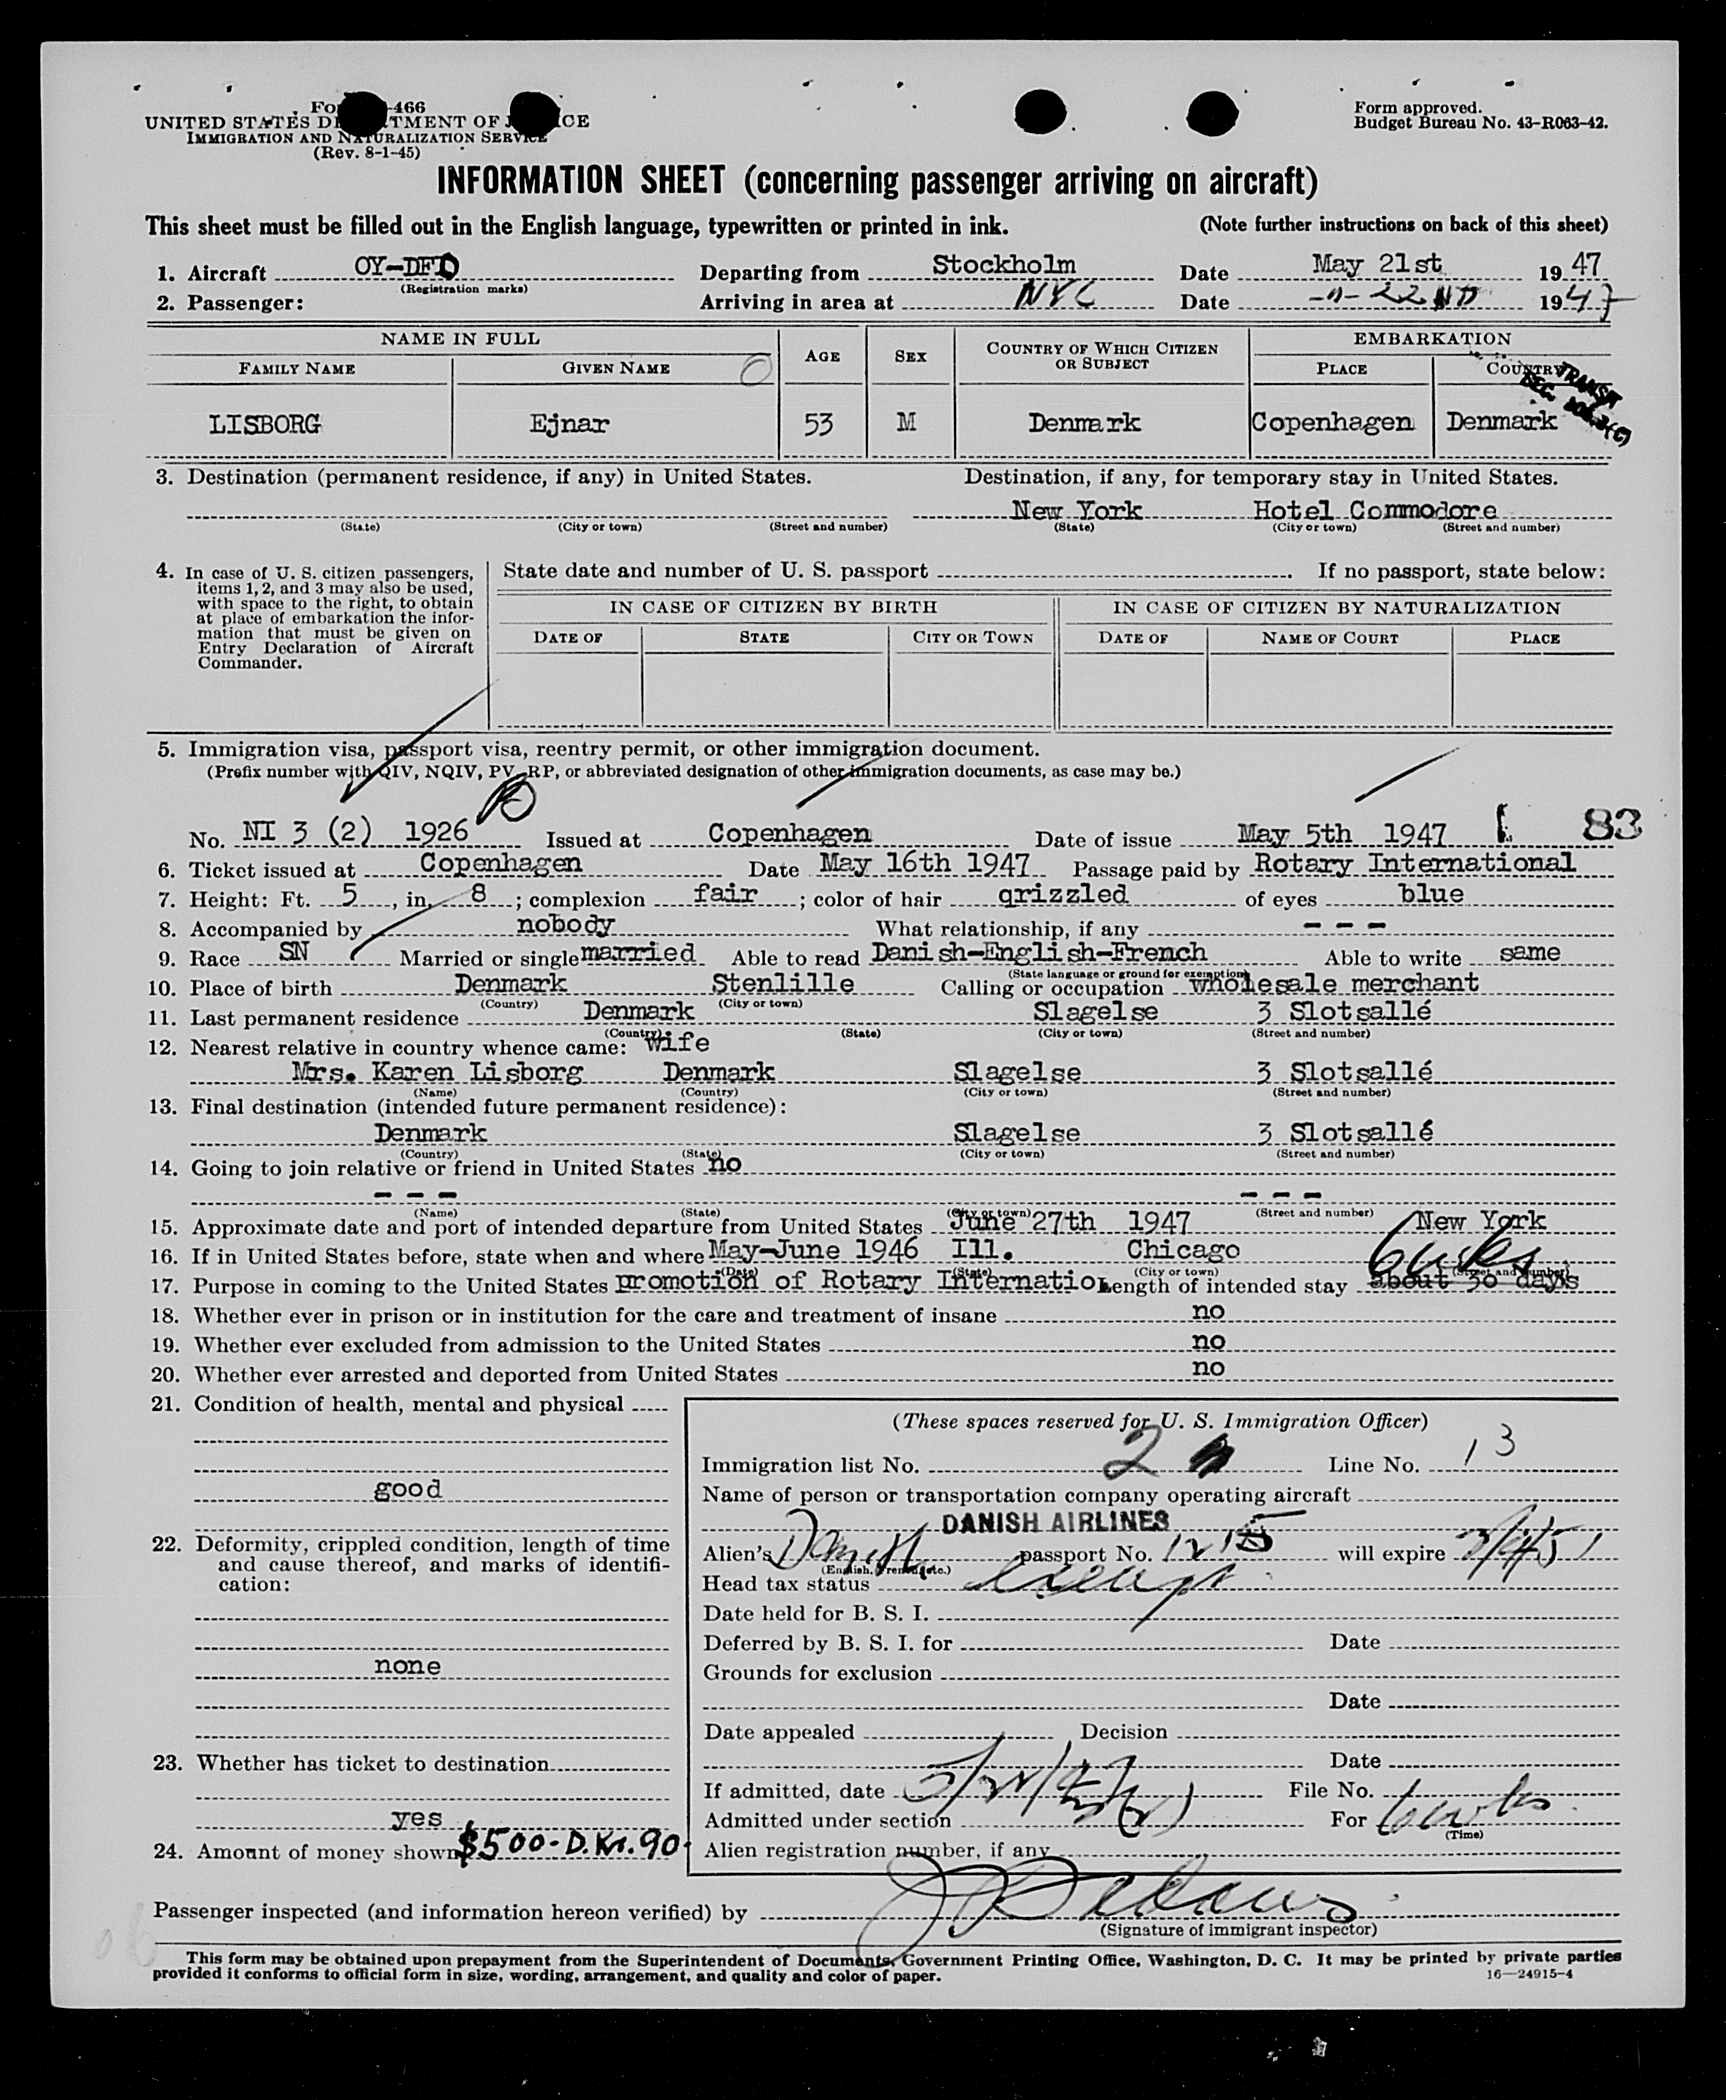 Form -466
UNITED STATES DEPARTMENT OF JUSTICE
IMMIGRATION AND NATURALIZATION SERVICE
(Rev. 8-1-45)
Form approved.
Budget Bureau No. 43-R063-42.
INFORMATION SHEET (concerning passenger arriving on aircraft)
This sheet must be filled out in the English language, typewritten or printed in ink. (Note further instructions on back of this sheet)
1. Aircraft OY-DFD Departing from Stockholm Date May 21st 1947
(Registration marks)
2. Passenger: Arriving in area at NYC Date -"- 22ND 1947
NAME IN FULL AGE SEX COUNTRY OF WHICH CITIZEN OR SUBJECT EMBARKATION
FAMILY NAME GIVEN NAME PLACE COUNTRY
TRANSIT
SEC.
LISBORG Ejnar 53 M Denmark Copenhagen Denmark
3. Destination (permanent residence, if any) in United States. Destination, if any, for temporary stay in United States.
New York Hotel Commodore
(State) (City or town) (Street and number) (State) (City or town) (Street and number)
4. In case of U. S. citizen passengers, items 1, 2, and 3 may also be used, with space to the right, to obtain at place of embarkation the information that must be given on Entry Declaration of Aircraft Commander.
State date and number of U. S. passport . If no passport, state below:
IN CASE OF CITIZEN BY BIRTH IN CASE OF CITIZEN BY NATURALIZATION
DATE OF STATE CITY OR TOWN DATE OF NAME OF COURT PLACE
5. Immigration visa, passport visa, reentry permit, or other immigration document.
(Prefix number with QIV, NQIV, PV, RP, or abbreviated designation of other immigration documents, as case may be.)
No. NI 3 (2) 1926 Issued at Copenhagen Date of issue May 5th 1947 83
6. Ticket issued at Copenhagen Date May 16th 1947 Passage paid by Rotary International
7. Height: Ft. 5, in. 8; complexion fair; color of hair grizzled of eyes blue
8. Accompanied by nobody What relationship, if any - - -
9. Race SN Married or single married Able to read Danish-English-French Able to write same
(State language or ground for exemption)
10. Place of birth Denmark Stenlille Calling or occupation wholesale merchant
(Country) (City or town)
11. Last permanent residence Denmark Slagelse 3 Slotsallé
(Country) (State) (City or town) (Street and number)
12. Nearest relative in country whence came: wife
Mrs. Karen Lisborg Denmark Slagelse 3 Slotsallé
(Name) (Country) (City or town) (Street and number)
13. Final destination (intended future permanent residence):
Denmark Slagelse 3 Slotsallé
(Country) (State) (City or town) (Street and number)
14. Going to join relative or friend in United States no
- - - - - -
(Name) (State) (City or town) (Street and number)
15. Approximate date and port of intended departure from United States June 27th 1947 New York
16. If in United States before, state when and where May-June 1946 Ill. Chicago
(Date) (State) (City or town) (Street and number)
6 wks
17. Purpose in coming to the United States promotion of Rotary Internatio Length of intended stay about 30 days
18. Whether ever in prison or in institution for the care and treatment of insane no
19. Whether ever excluded from admission to the United States no
20. Whether ever arrested and deported from United States no
21. Condition of health, mental and physical
good
22. Deformity, crippled condition, length of time and cause thereof, and marks of identification:
none
23. Whether has ticket to destination
yes
24. Amount of money shown $500- D.Kr. 90-
(These spaces reserved for U. S. Immigration Officer)
Immigration list No. 2 Line No. 13
Name of person or transportation company operating aircraft
DANISH AIRLINES
Alien's Danish passport No. will expire
(English, French, etc.)
Head tax status exempt
Date held for B. S. I.
Deferred by B. S. I. for Date
Grounds for exclusion
Date
Date appealed Decision
Date
If admitted, date 5/22/47 File No.
Admitted under section For 6 wks
(Time)
Alien registration number, if any
Passenger inspected (and information hereon verified) by
(Signature of immigrant inspector)
This form may be obtained upon prepayment from the Superintendent of Documents, Government Printing Office, Washington, D. C. It may be printed by private parties
provided it conforms to official form in size, wording, arrangement, and quality and color of paper. 16—24915-4